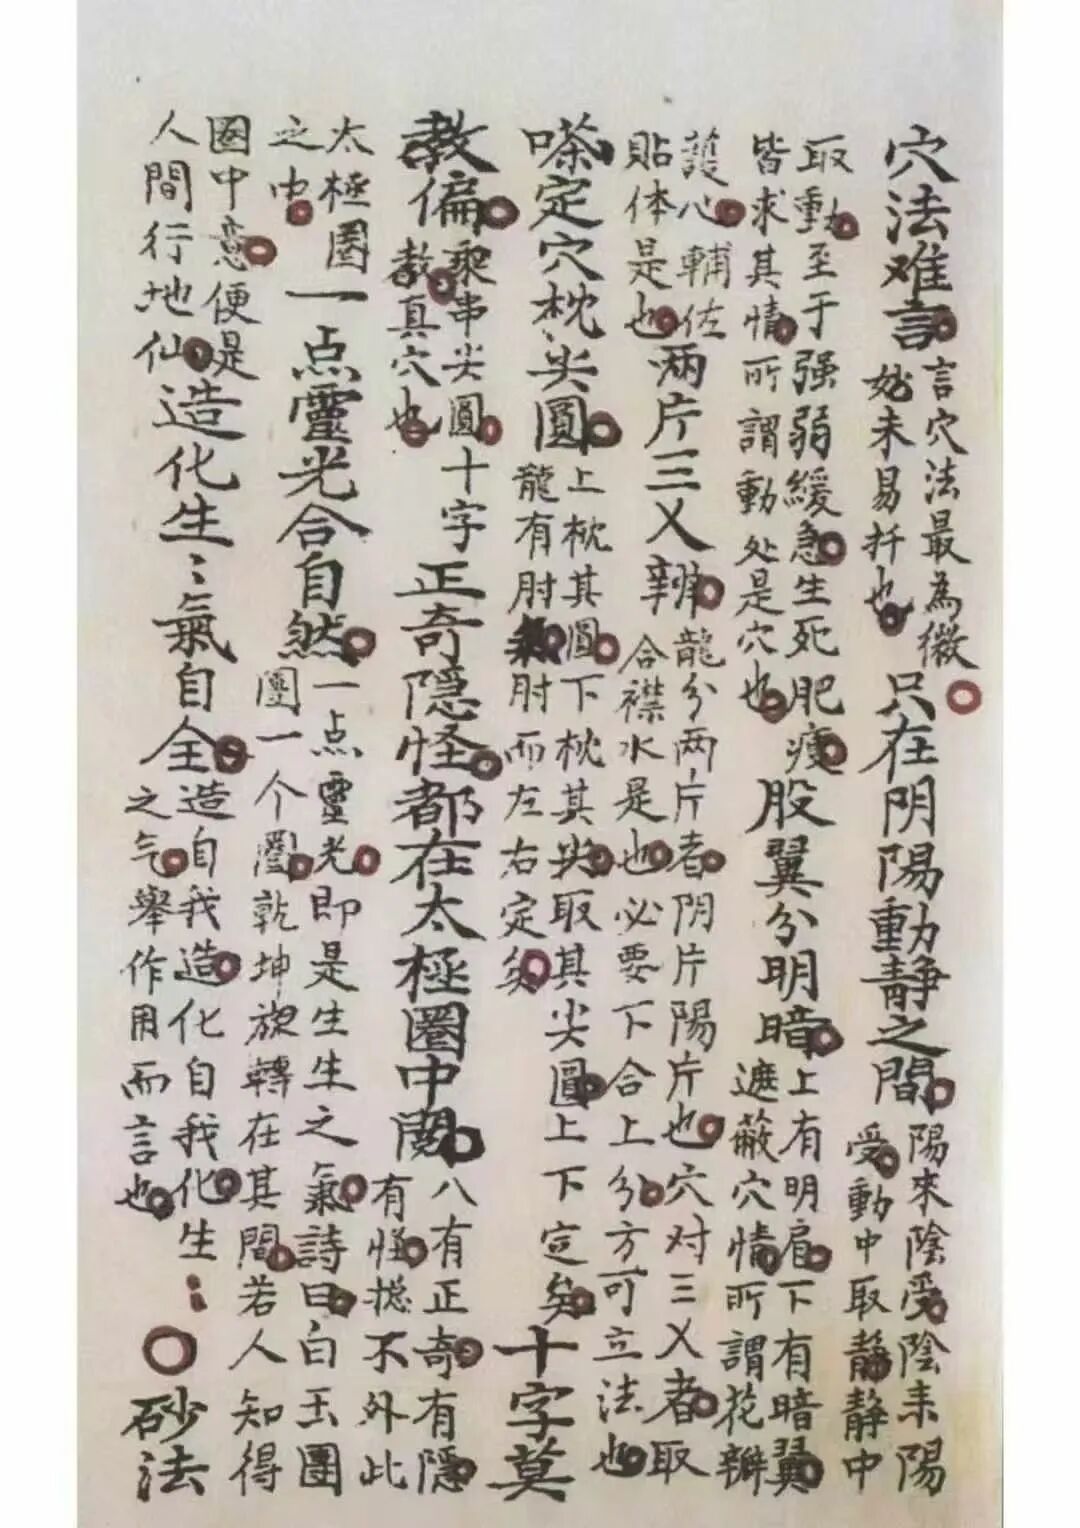 穴法难言
言穴法最為微
妙未易扦也
只在阴陽動静之間
陽來陰受陰耒陽
受動中取静静中
取動至于强弱緩急生死肥瘦
皆求其情所謂動处是穴也
股翼分明暗
上有明肩下有暗翼
遮蔽穴情所謂花瓣
護心輔佐
貼体是也
两片三乂辨
龍分两片者阴片陽片也穴对三乂者取
合襟水是也必要下合上分方可立法也
嗏定穴枕尖圓
上枕其圓下枕其尖取其尖圓上下定矣
龍有肘肘而左右定矣
十字莫
教偏
串尖圓十字
教真穴也
正奇隱怪都在太極圈中
八有正奇有隱
有怪摠不外此
太極圈
之中
一点靈光合自然
一点靈光即是生生之氣詩曰白玉團
團一个圈乾坤旋轉在其間若人知得
圈中意便是
人間行地仙
造化生〻氣自全
造自我造化自我化生〻
之气舉作用而言也
〇砂法